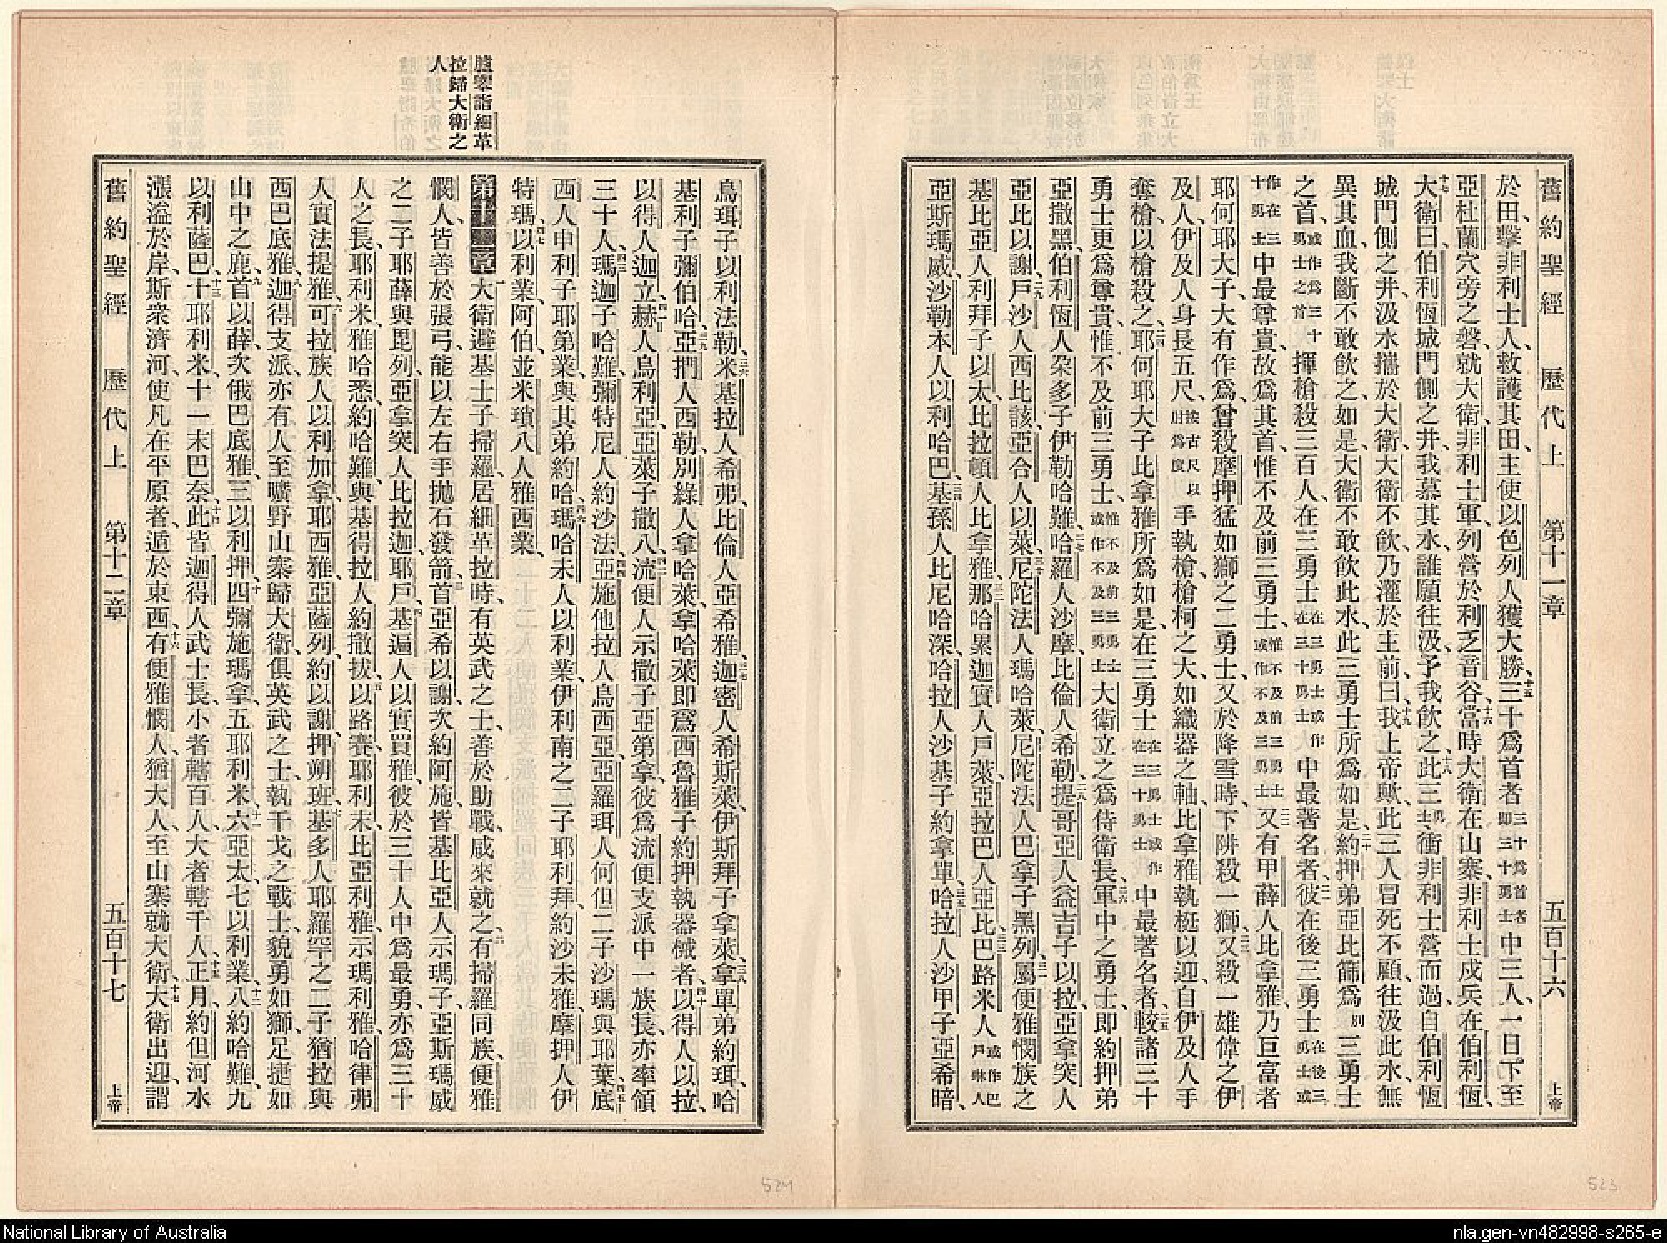 舊約聖經 歷代上 第十一章 五百十六 上帝
於田擊非利士人救護其田主使以色列人獲大勝三十爲首者三十爲首者即三十勇士中三人一日下至
亞杜蘭穴旁之磐就大衛非利士軍列營於利乏音谷當時大衛在山寨非利士戍兵在伯利恆
大衛曰伯利恆城門側之井我慕其水誰願往汲予我飲之此三勇士衝非利士營而過自伯利恆
城門側之井汲水攜於大衛大衛不飲乃灌於主前曰我上帝歟此三人冒死不顧往汲此水無
異其血我斷不敢飲之如是大衛不敢飲此水此三勇士所爲如是約押弟亞比篩爲別三勇士
之首或作爲三十勇士之首揮槍殺三百人在三勇士在三勇士或作在三十勇士中最著名者彼在後三勇士在後三勇士或
作在三十勇士中最尊貴故爲其首惟不及前三勇士惟不及前三勇士或作不及三勇士又有甲薛人比拿雅乃巨富者
耶何耶大子大有作爲曾殺摩押猛如獅之二勇士又於降雪時下阱殺一獅又殺一雄偉之伊
及人伊及人身長五尺按古尺以肘爲度手執槍槍柯之大如織器之軸比拿雅執梃以迎自伊及人手
奪槍以槍殺之耶何耶大子比拿雅所爲如是在三勇士在三勇士或作在三十勇士中最著名者較諸三十
勇士更爲尊貴惟不及前三勇士惟不及前三勇士或作不及三勇士大衛立之爲侍衛長軍中之勇士即約押弟
亞撒黑伯利恆人朶多子伊勒哈難哈羅人沙摩比倫人希勒提哥亞人益吉子以拉亞拿突人
亞比以謝戶沙人西比該亞合人以萊尼陀法人瑪哈萊尼陀法人巴拿子黑列屬便雅憫族之
基比亞人利拜子以太比拉頓人比拿雅那哈累迦實人戶萊亞拉巴人亞比巴路米人或作巴戶琳人
亞斯瑪威沙勒本人以利哈巴基孫人比尼哈深哈拉人沙基子約拿單哈拉人沙甲子亞希暗
烏珥子以利法勒米基拉人希弗比倫人亞希雅迦密人希斯萊伊斯拜子拿萊拿單弟約珥哈
基利子彌伯哈亞捫人西勒別綠人拿哈萊拿哈萊即爲西魯雅子約押執器械者以得人以拉
以得人迦立赫人烏利亞亞萊子撒八流便人示撒子亞第拿彼爲流便支派中一族長亦率領
三十人瑪迦子哈難彌特尼人約沙法亞施他拉人烏西亞亞羅珥人何但二子沙瑪與耶葉底
西人申利子耶第業與其弟約哈瑪哈未人以利業伊利南之二子耶利拜約沙未雅摩押人伊
特瑪以利業阿伯並米瑣八人雅西業
臚舉詣細革
拉歸大衛之
人
第十二章大衛避基士子掃羅居細革拉時有英武之士善於助戰咸來就之有掃羅同族便雅
憫人皆善於張弓能以左右手拋石發箭首亞希以謝次約阿施皆基比亞人示瑪子亞斯瑪威
之二子耶薛與毘列亞拿突人比拉迦耶戶基遍人以實買雅彼於三十人中爲最勇亦爲三十
人之長耶利米雅哈悉約哈難與基得拉人約撒拔以路賽耶利末比亞利雅示瑪利雅哈律弗
人實法提雅可拉族人以利加拿耶西雅亞薩列約以謝押朔班基多人耶羅罕之二子猶拉與
西巴底雅迦得支派亦有人至曠野山寨歸大衛俱英武之士執干戈之戰士貌勇如獅足捷如
山中之鹿首以薛次俄巴底雅三以利押四彌施瑪拿五耶利米六亞太七以利業八約哈難九
以利薩巴十耶利米十一末巴奈此皆迦得人武士長小者轄百人大者轄千人正月約但河水
漲溢於岸斯衆濟河使凡在平原者遁於東西有便雅憫人猶大人至山寨就大衛大衛出迎謂
舊約聖經 歷代上 第十二章 五百十七 上帝
524
523
National Library of Australia
nla.gen-vn482998-s265-e